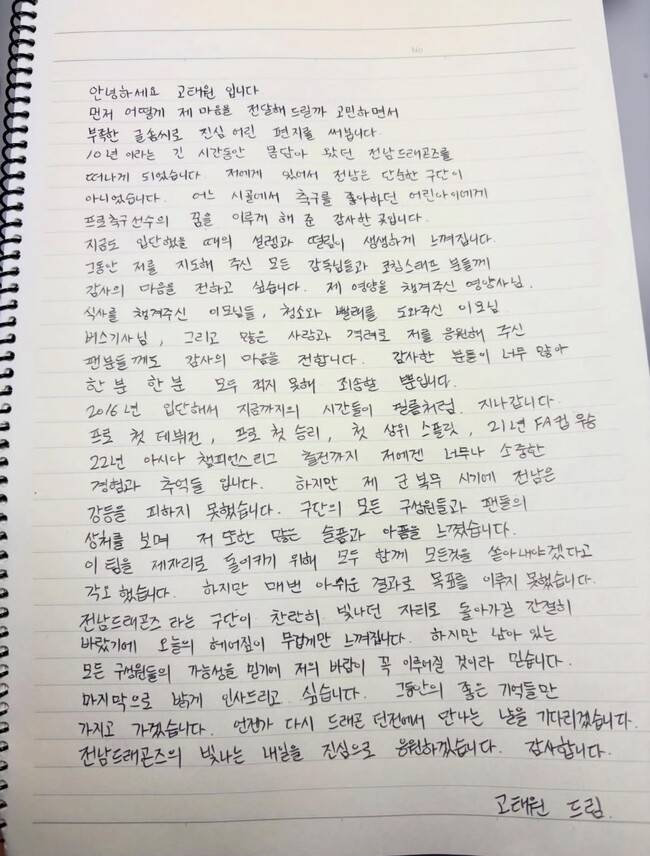 안녕하세요 고태원 입니다
먼저 어떻게 제 마음을 전달해 드릴까 고민하면서
부족한 글솜씨로 진심 어린 편지를 써봅니다.
10년 이라는 긴 시간동안 몸담아 왔던 전남드래곤즈를
떠나게 되었습니다. 저에게 있어서 전남은 단순한 구단이
아니었습니다. 어느 시골에서 축구를 좋아하던 어린아이에게
프로축구선수의 꿈을 이루게 해 준 감사한 곳입니다.
지금도 입단했을 때의 설렘과 떨림이 생생하게 느껴집니다.
그동안 저를 지도해 주신 모든 감독님들과 코칭스태프 분들께
감사의 마음을 전하고 싶습니다. 제 영양을 챙겨주신 영양사님.
식사를 챙겨주신 이모님들, 청소와 빨래를 도와주신 이모님
버스기사님, 그리고 많은 사랑과 격려로 저를 응원해 주신
팬분들께도 감사의 마음을 전합니다. 감사한 분들이 너무 많아
한 분 한 분 모두 적지 못해 죄송할 뿐입니다.
2016년 입단해서 지금까지의 시간들이 필름처럼 지나갑니다.
프로 첫 데뷔전, 프로 첫 승리, 첫 상위 스플릿, 21년 FA컵 우승
22년 아시아 챔피언스리그 출전까지 저에겐 너무나 소중한
경험과 추억들 입니다. 하지만 제 군 복무 시기에 전남은
강등을 피하지 못했습니다. 구단의 모든 구성원들과 팬들의
상처를 보며 저 또한 많은 슬픔과 아픔을 느꼈습니다.
이 팀을 제자리로 돌이키기 위해 모두 함께 모든것을 쏟아내야겠다고
각오 했습니다. 하지만 매번 아쉬운 결과로 목표를 이루지 못했습니다.
전남드래곤즈 라는 구단이 찬란히 빛나던 자리로 돌아가길 간절히
바랐기에 오늘의 헤어짐이 무겁게만 느껴집니다. 하지만 남아 있는
모든 구성원들의 가능성을 믿기에 저의 바람이 꼭 이루어질 것이라 믿습니다.
마지막으로 밝게 인사드리고 싶습니다. 그동안의 좋은 기억들만
가지고 가겠습니다. 언젠가 다시 드래곤 던전에서 만나는 날을 기다리겠습니다.
전남드래곤즈의 빛나는 내일을 진심으로 응원하겠습니다. 감사합니다.
고태원 드림.